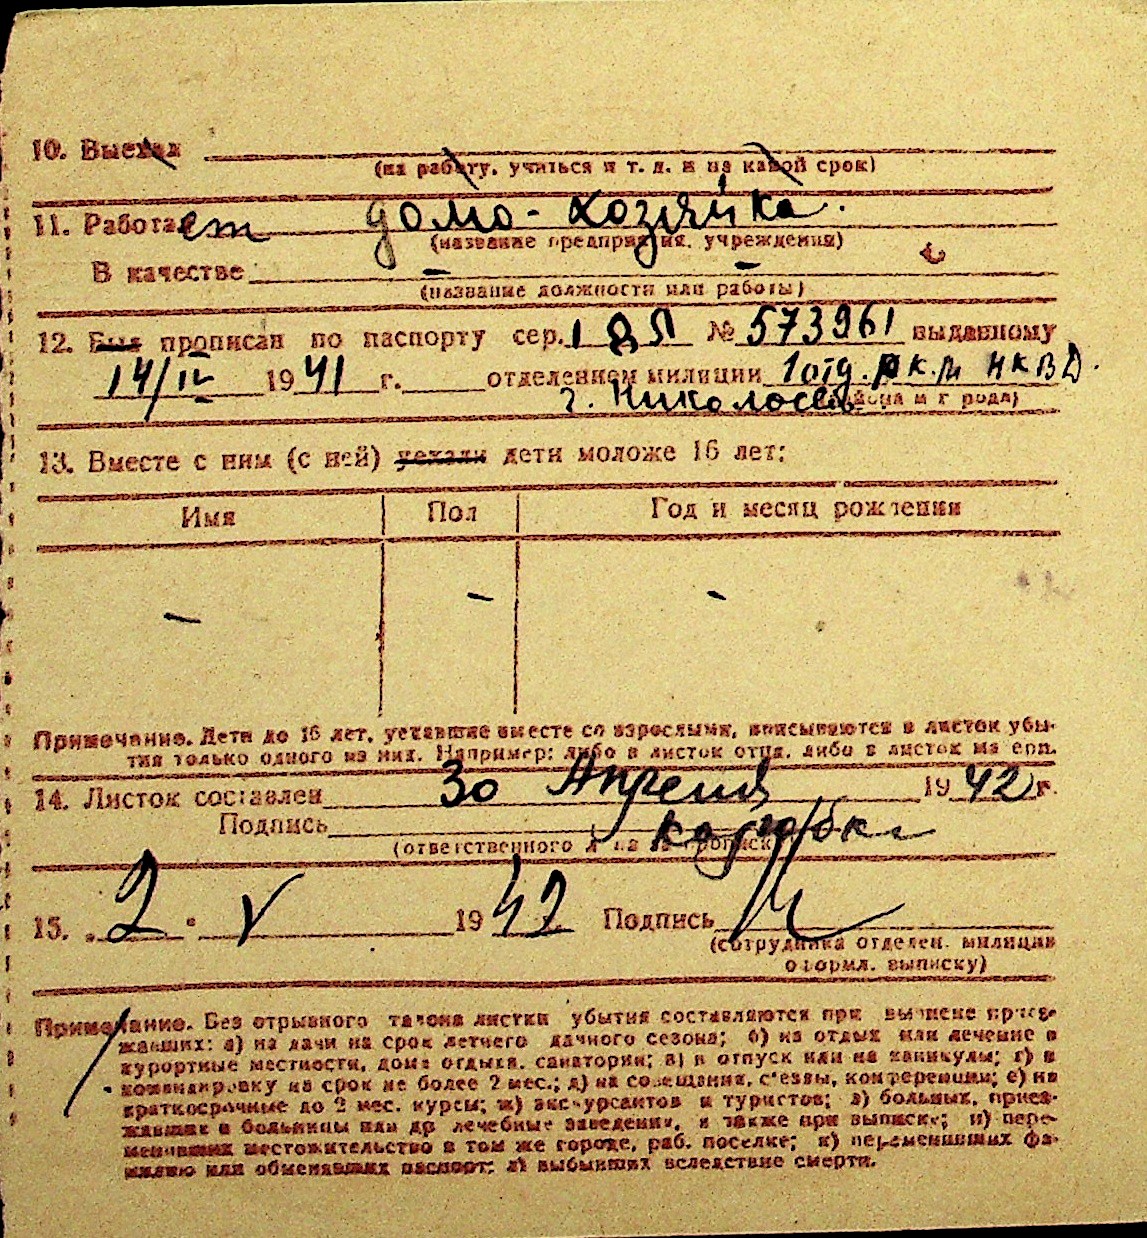 10. Выехал
(на работу, учиться и т. д. и на какой срок)
11. Работает домо-хозяйка.
(название предприятия, учреждения)
В качестве — —
(название должности или работы)
12. Был прописан по паспорту сер. № 573961 выданному
14/IV 1941 г. отделением милиции 1 отд. Р.К.М НКВД.
г. Николаев
13. Вместе с ним (с ней) уехали дети моложе 16 лет:
Имя Пол Год и месяц рождения
— — —
Примечание. Дети до 16 лет, уехавшие вместе со взрослыми, вписываются в листок убы-
тия только одного из них. Например: либо в листок отца, либо в листок матери.
14. Листок составлен 30 Апреля 1942 г.
Подпись
(ответственного за прописку)
15. 2 " V 1942 Подпись
(сотрудника отделен. милиции
оформл. выписку)
Примечание. Без отрывного талона листки убытия составляются при выписке приез-
жавших: а) на дачи на срок летнего дачного сезона; б) на отдых или лечение в
курортные местности, дома отдыха, санатории; в) в отпуск или на каникулы; г) в
командировку на срок не более 2 мес.; д) на совещания, с'езды, конференции; е) на
краткосрочные до 2 мес. курсы; ж) экскурсантов и туристов; з) больных, приез-
жавших в больницы или др лечебные заведения, а также при выписке; и) пере-
менивших местожительство в том же городе, раб. поселке; к) переменивших фа-
милию или обменявших паспорт; л) выбывших вследствие смерти.